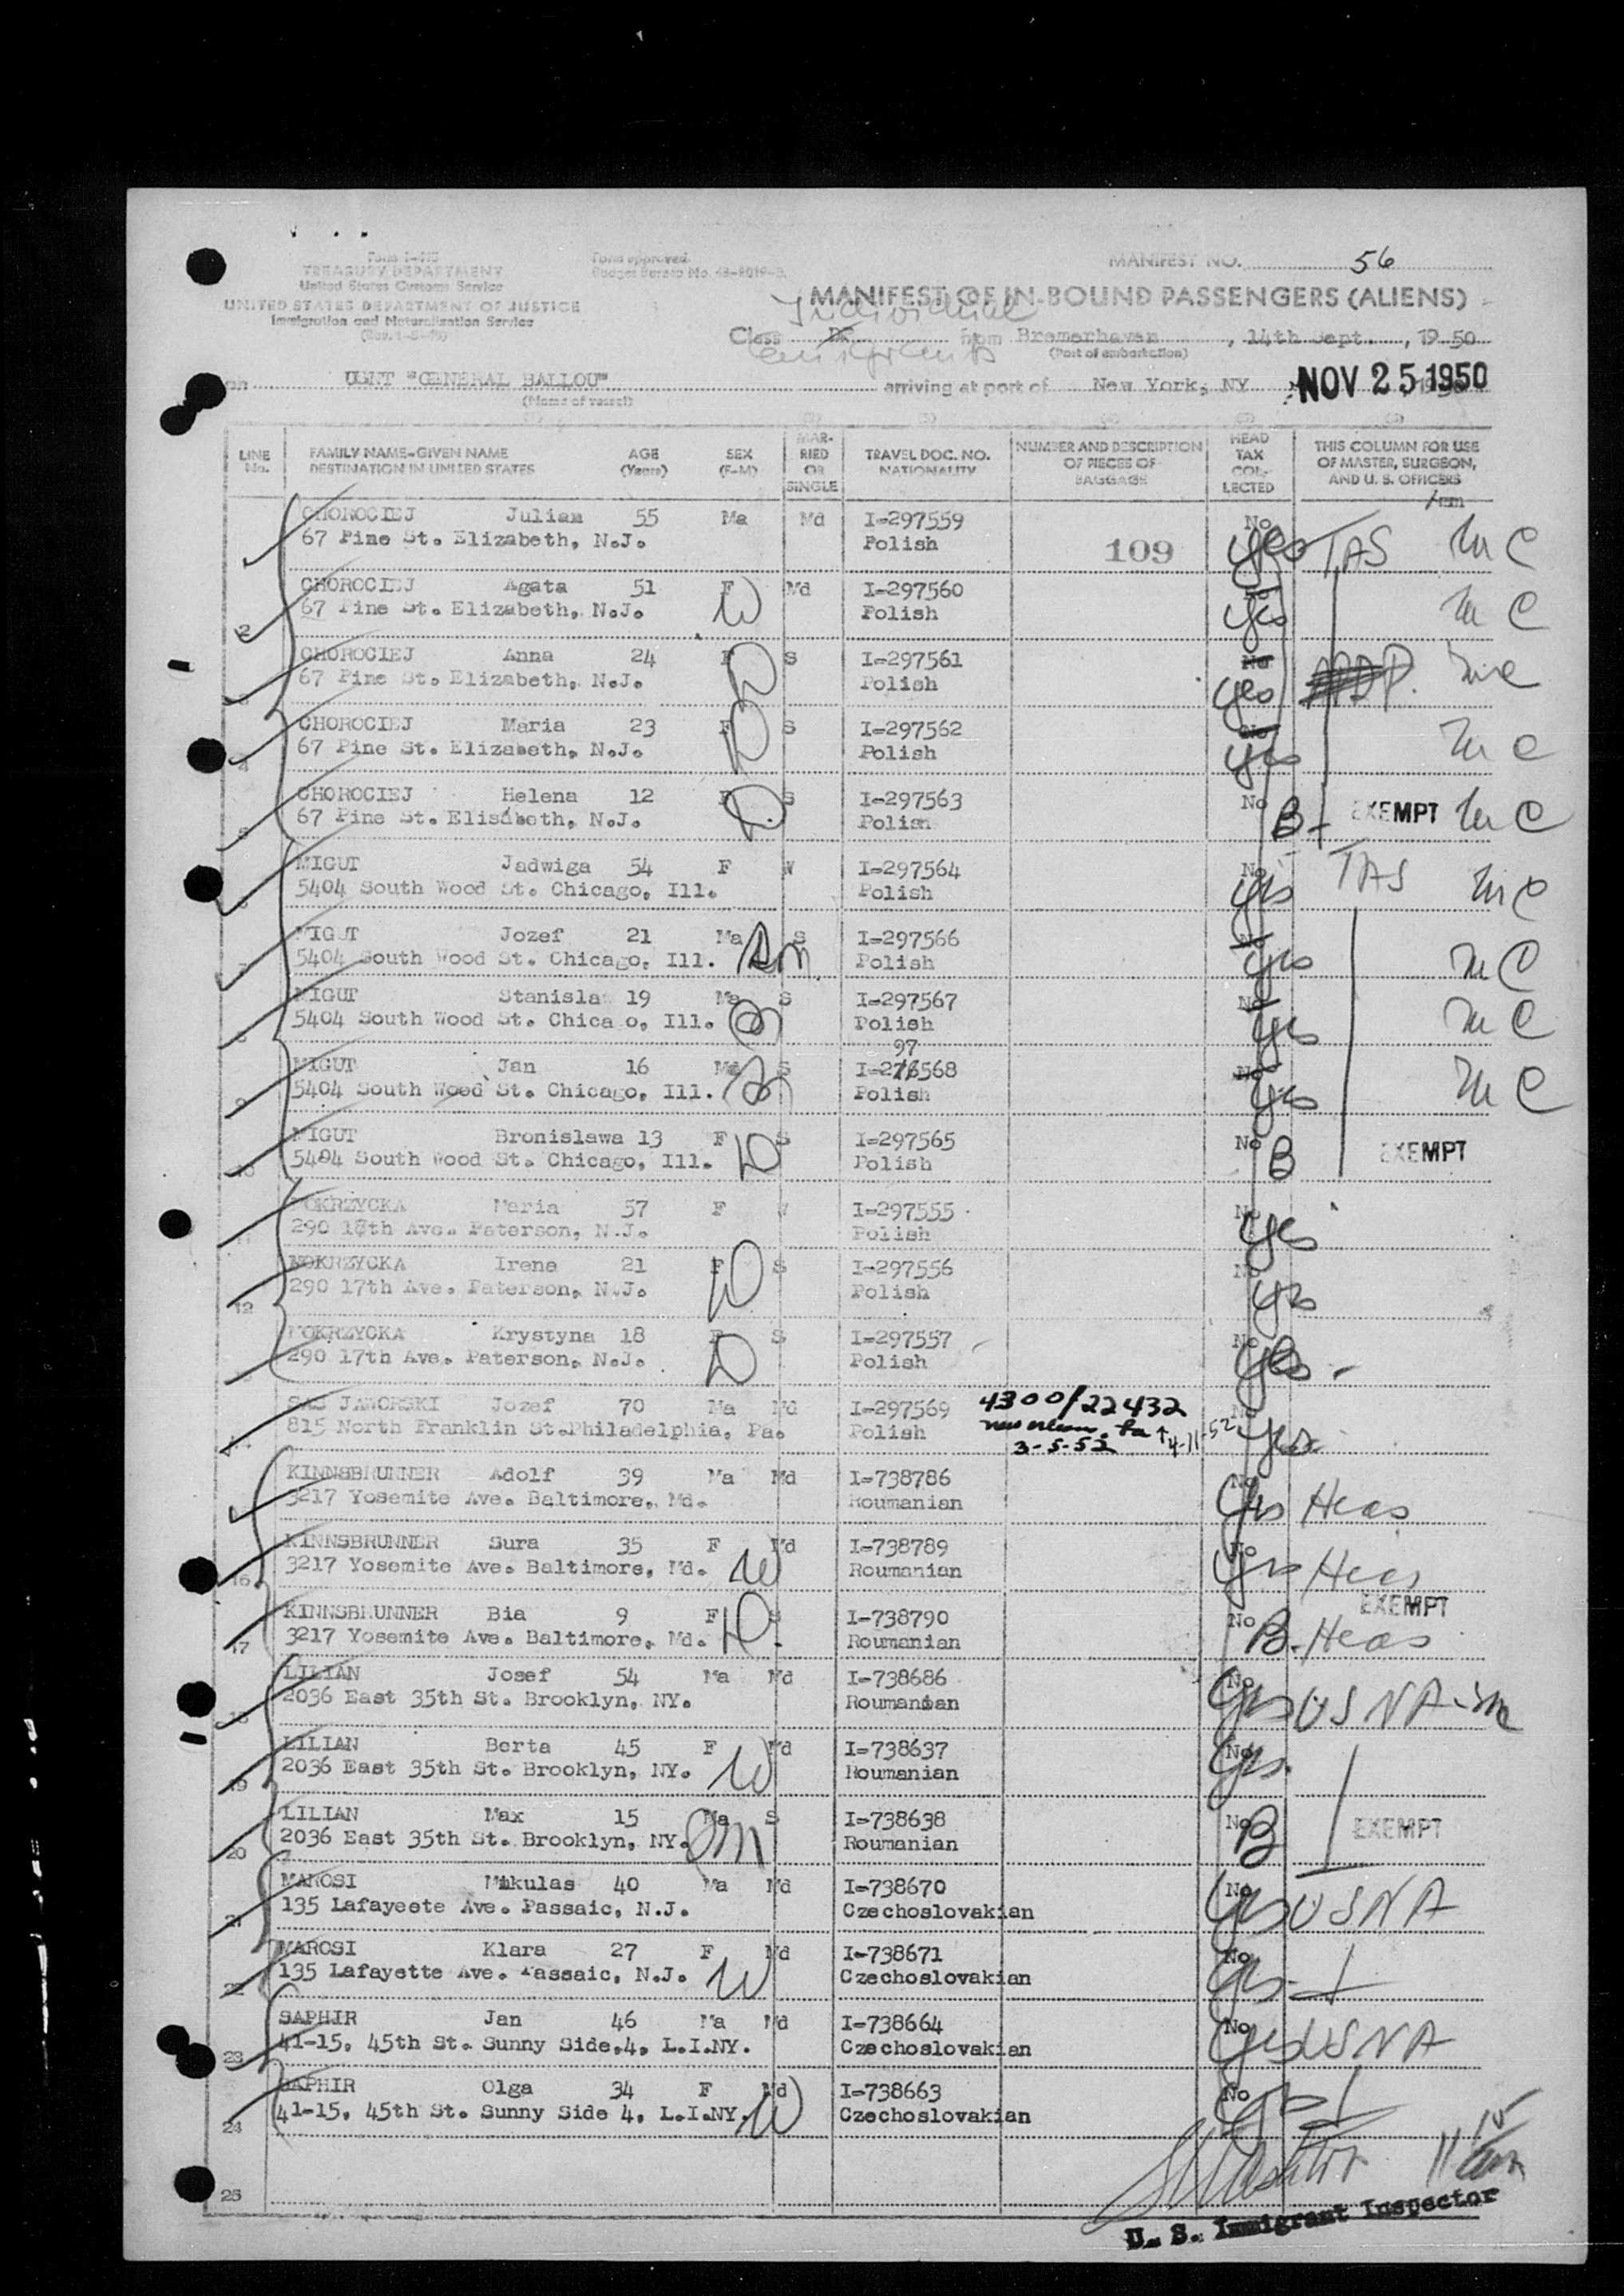 Form I-415
TREASURY DEPARTMENT
United States Customs Service
UNITED STATES DEPARTMENT OF JUSTICE
Immigration and Naturalization Service
Form approved.
Budget Bureau No. 43-R019-3.
MANIFEST NO. 56
MANIFEST OF IN-BOUND PASSENGERS (ALIENS)
Individual
Class DP from Bremerhaven, 14th Sept., 1950
emigrants
(Port of embarkation)
on USNT "GENERAL BALLOU" arriving at port of New York, NY NOV 25 1950
(Name of vessel)
LINE No.
FAMILY NAME-GIVEN NAME
DESTINATION IN UNITED STATES
AGE (Years)
SEX (F-M)
MARRIED OR SINGLE
TRAVEL DOC. NO.
NATIONALITY
NUMBER AND DESCRIPTION OF PIECES OF BAGGAGE
HEAD TAX COLLECTED
THIS COLUMN FOR USE OF MASTER, SURGEON, AND U. S. OFFICERS
CHOROCIEJ Julian 55 Ma Md I-297559 No
67 Pine St. Elizabeth, N.J. Polish 109 yes TAS
CHOROCIEJ Agata 51 F Md I-297560 No
2 67 Pine St. Elizabeth, N.J. W Polish yes
CHOROCIEJ Anna 24 F S I-297561 No
67 Pine St. Elizabeth, N.J. D Polish yes
CHOROCIEJ Maria 23 F S I-297562 No
4 67 Pine St. Elizabeth, N.J. D Polish yes
CHOROCIEJ Helena 12 F S I-297563 No
5 67 Pine St. Elisabeth, N.J. D Polish B EXEMPT
MIGUT Jadwiga 54 F W I-297564 No
6 5404 South Wood St. Chicago, Ill. Polish yes TAS
MIGUT Jozef 21 Ma S I-297566 No
7 5404 South Wood St. Chicago, Ill. Polish yes
MIGUT Stanisla 19 Ma S I-297567 No
8 5404 South Wood St. Chica o, Ill. Polish yes
97
MIGUT Jan 16 Ma S I-276568 No
9 5404 South Wood St. Chicago, Ill. Polish yes
MIGUT Bronislawa 13 F S I-297565 No
10 5404 South Wood St. Chicago, Ill. D Polish B EXEMPT
MOKRZYCKA Maria 57 F W I-297555 No
11 290 18th Ave. Paterson, N.J. Polish yes
MOKRZYCKA Irena 21 F S I-297556 No
12 290 17th Ave. Paterson, N.J. D Polish yes
MOKRZYCKA Krystyna 18 F S I-297557 No
290 17th Ave. Paterson, N.J. D Polish yes
SAS JAWORSKI Jozef 70 Ma Md I-297569 4300/22432 No
14 815 North Franklin St.Philadelphia, Pa. Polish 4-11-52 yes
3-5-52
KINNSBRUNNER Adolf 39 Ma Md I-738786 No
3217 Yosemite Ave. Baltimore, Md. Roumanian yes Heas
KINNSBRUNNER Sura 35 F Md I-738789 No
16 3217 Yosemite Ave. Baltimore, Md. W Roumanian yes Heas
KINNSBRUNNER Bia 9 F S I-738790 No EXEMPT
17 3217 Yosemite Ave. Baltimore, Md. D Roumanian B. Heas
LILIAN Josef 54 Ma Md I-738686 No
18 2036 East 35th St. Brooklyn, NY. Roumanian yes USNA
LILIAN Berta 45 F Md I-738637 No
19 2036 East 35th St. Brooklyn, NY. W Roumanian yes
LILIAN Max 15 Ma S I-738638 No
20 2036 East 35th St. Brooklyn, NY. Roumanian B EXEMPT
MAROSI Mikulas 40 Ma Md I-738670 No
21 135 Lafayeete Ave. Passaic, N.J. Czechoslovakian yes USNA
MAROSI Klara 27 F Md I-738671 No
22 135 Lafayette Ave. Passaic, N.J. W Czechoslovakian yes
SAPHIR Jan 46 Ma Md I-738664 No
23 41-15, 45th St. Sunny Side.4, L.I.NY. Czechoslovakian yes USNA
SAPHIR Olga 34 F Md I-738663 No
24 41-15, 45th St. Sunny Side 4, L.I.NY. W Czechoslovakian
25
U. S. Immigrant Inspector